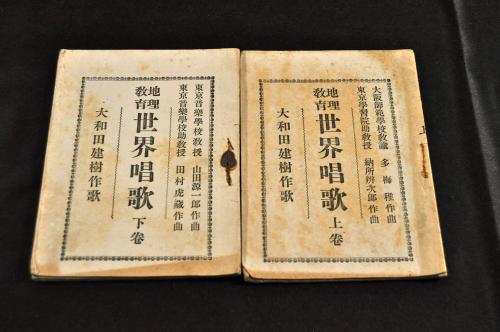 大阪師範學校教諭 多梅稚作曲
東京學習院助教授 納所辨次郎作曲
地理教育 世界唱歌 上卷
大和田建樹作歌
東京音樂學校教授 山田源一郎作曲
東京音樂學校助教授 田村虎藏作曲
地理教育 世界唱歌 下卷
大和田建樹作歌